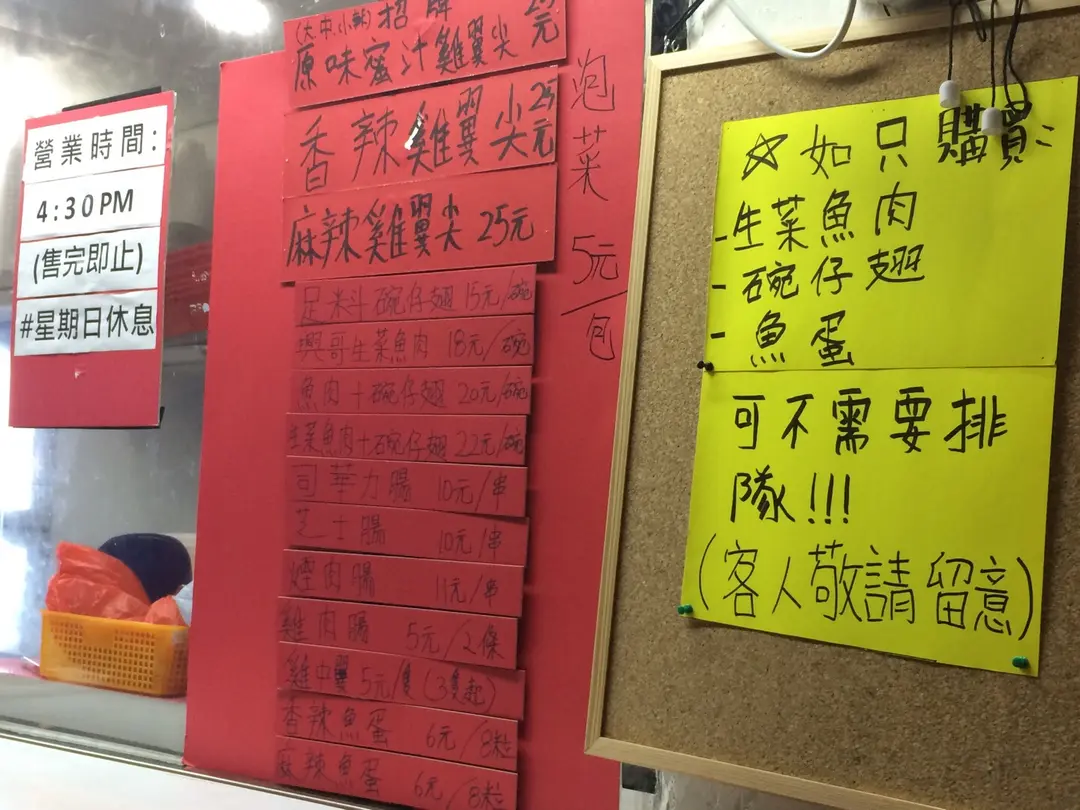 營業時間:
4:30PM
(售完即止)
#星期日休息
(大中小辣) 招牌
原味蜜汁雞翼尖 25元
香辣雞翼尖 25元
麻辣雞翼尖 25元
足料碗仔翅 15元/碗
興哥生菜魚肉 18元/碗
魚肉+碗仔翅 20元/碗
生菜魚肉+碗仔翅 22元/碗
司華力腸 10元/串
芝士腸 10元/串
煙肉腸 11元/串
雞肉腸 5元/2條
雞中翼 5元/隻(3隻起)
香辣魚蛋 6元/8粒
麻辣魚蛋 6元/8粒
泡菜 5元/包
☆如只購買:
-生菜魚肉
-碗仔翅
-魚蛋
可不需要排
隊!!!
(客人敬請留意)